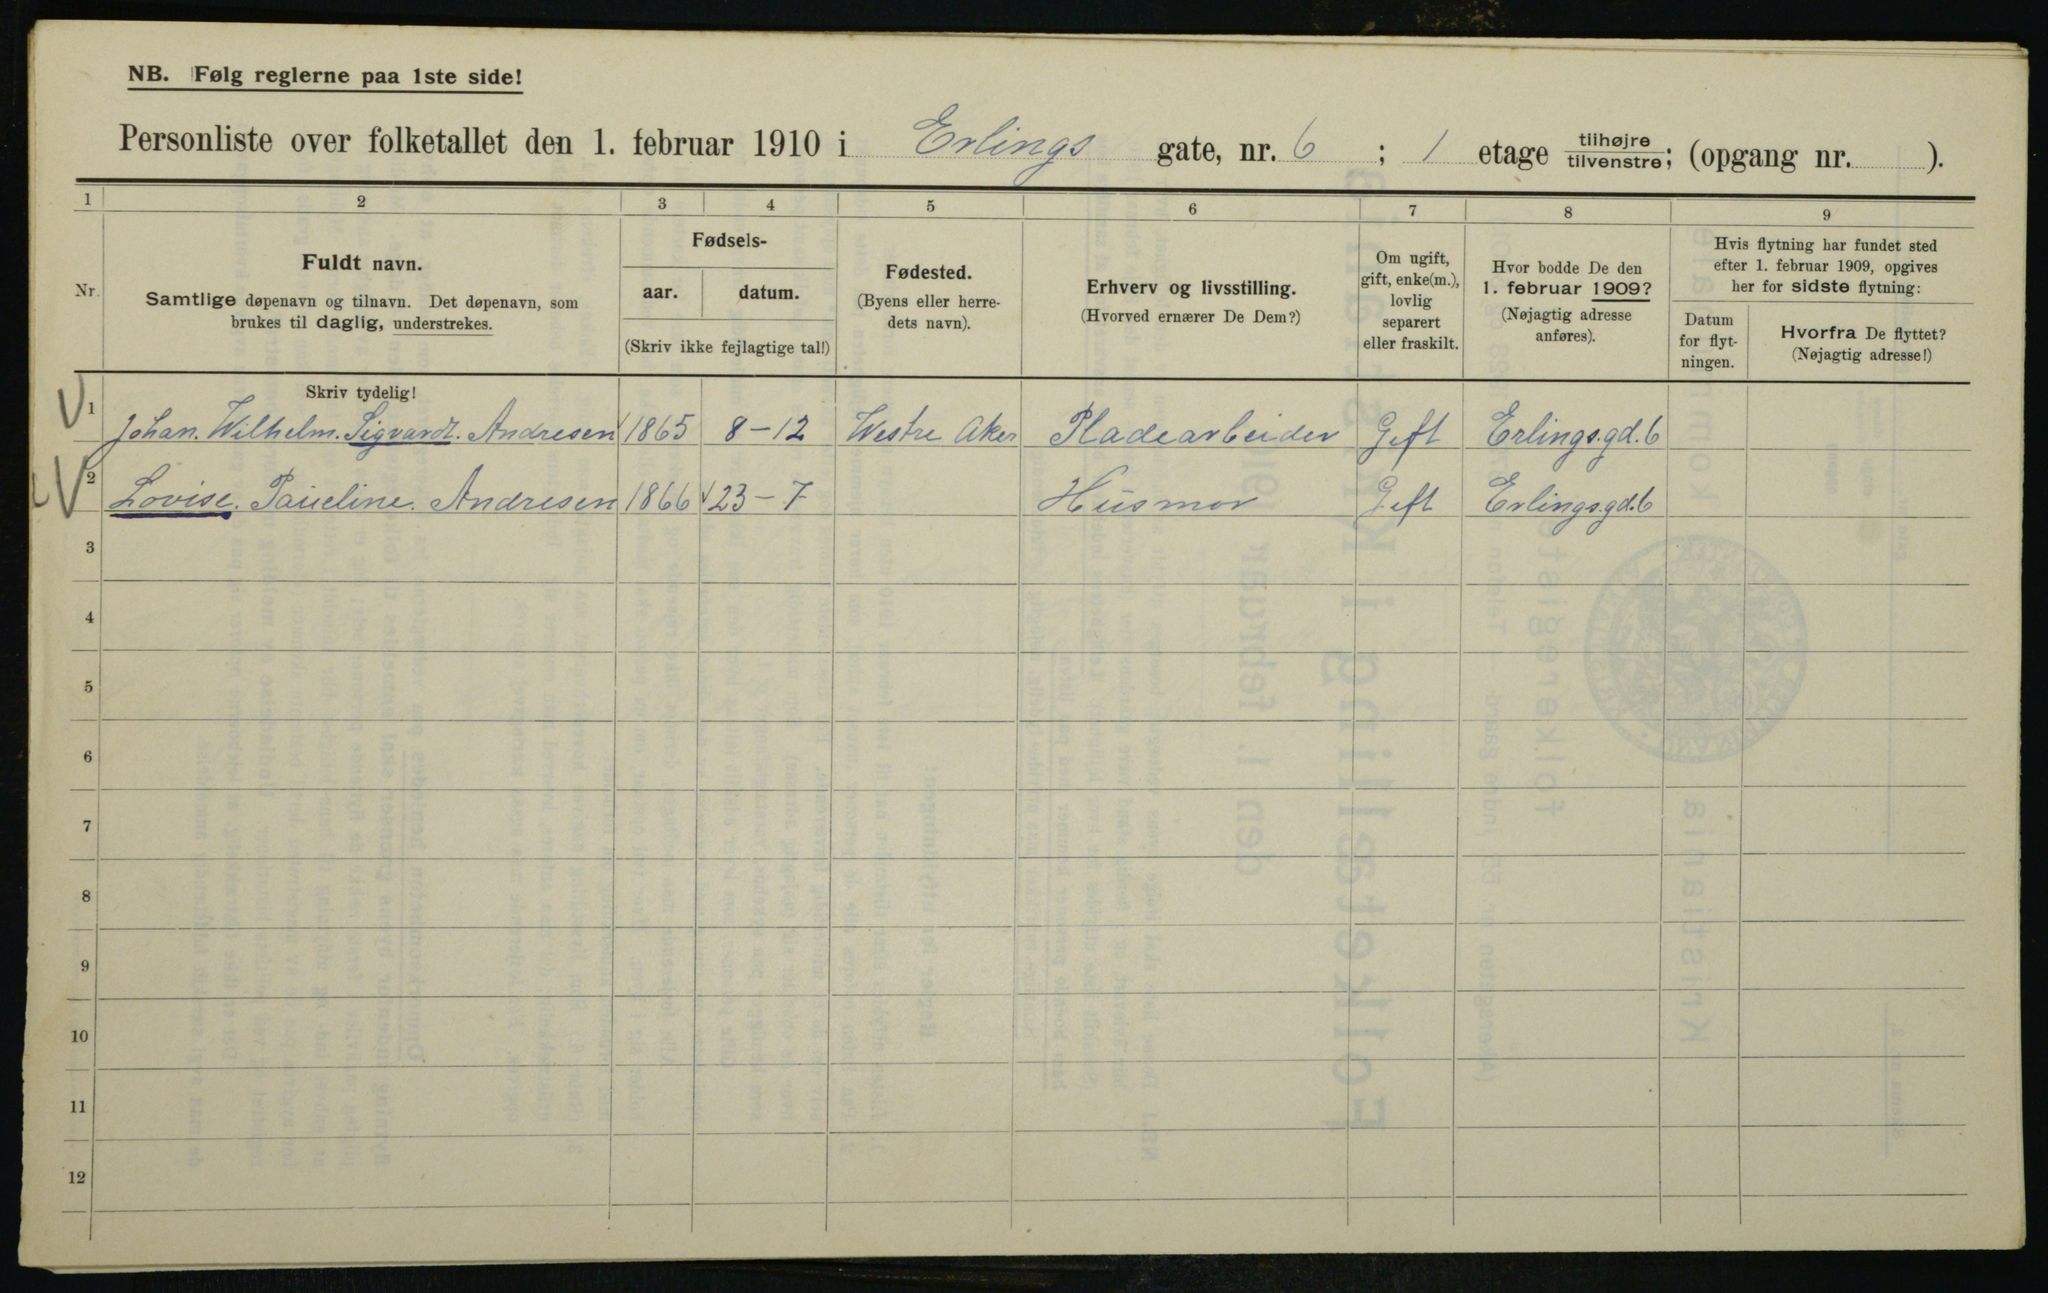 NB. Følg reglerne paa 1ste side!
Personliste over folketallet den 1. februar 1910 i Erlings gate, nr. 6 ; 1 etage tilhøjre/tilvenstre; (opgang nr. ).
1 2 3 4 5 6 7 8 9
Nr.
Fuldt navn.
Samtlige døpenavn og tilnavn. Det døpenavn, som
brukes til daglig, understrekes.
Fødsels-
aar. datum.
(Skriv ikke fejlagtige tal!)
Fødested.
(Byens eller herre-
dets navn).
Erhverv og livsstilling.
(Hvorved ernærer De Dem?)
Om ugift,
gift, enke(m.),
lovlig
separert
eller fraskilt.
Hvor bodde De den
1. februar 1909?
(Nøjagtig adresse
anføres).
Hvis flytning har fundet sted
efter 1. februar 1909, opgives
her for sidste flytning:
Datum
for flyt-
ningen.
Hvorfra De flyttet?
(Nøjagtig adresse!)
Skriv tydelig!
1 Johan. Wilhelm. Sigvardt. Andresen 1865 8-12 Westre Aker Pladearbeider Gift Erlings.gd.6
2 Lovise. Paueline. Andresen 1866 23-7 Husmor Gift Erlings.gd.6
3
4
5
6
7
8
9
10
11
12